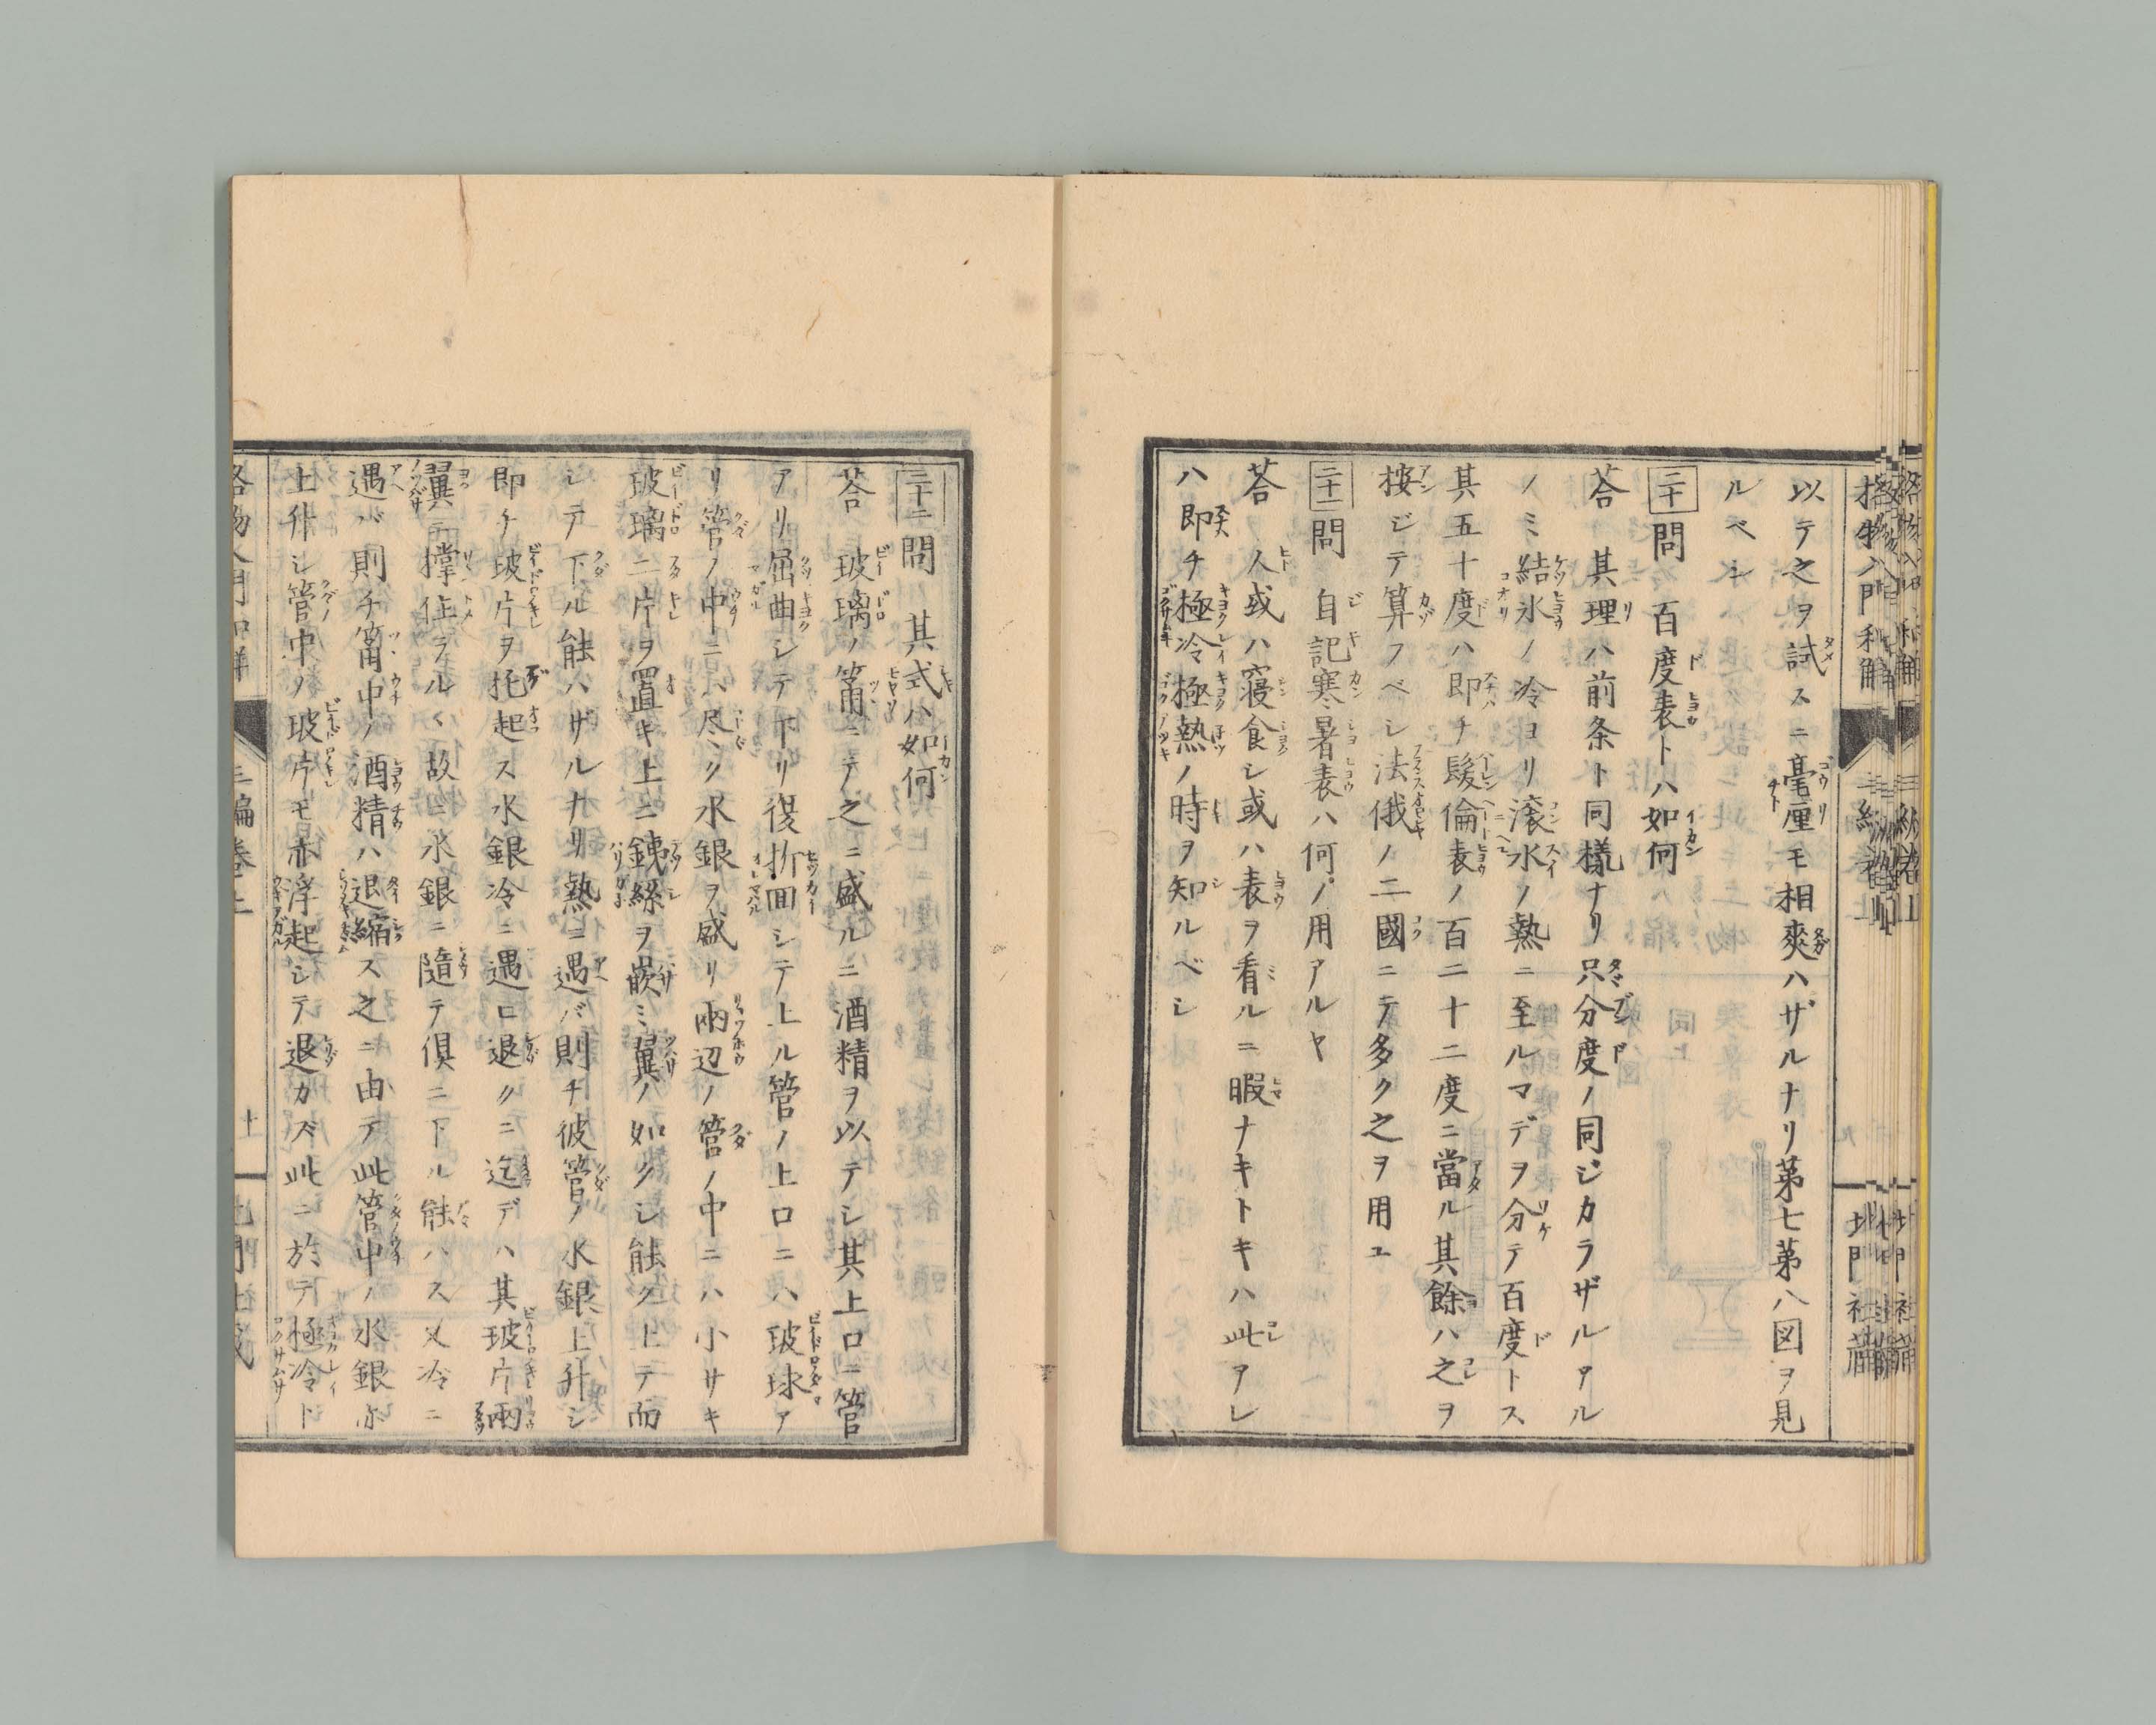 以テ之ヲ試スニ毫厘モ相爽ハザルナリ第七第八図ヲ見
ルベシ
二十 問 百度表トハ如何
荅 其理ハ前条ト同様ナリ只分度ノ同ジカラザルアル
ノミ結氷ノ冷ヨリ滾水ノ熱ニ至ルマデヲ分テ百度トス
其五十度ハ即チ髲倫表ノ百二十二度ニ當ル其餘ハ之ヲ
按ジテ算フベシ法俄ノ二國ニテ多ク之ヲ用ユ
二十一 問 自記寒暑表ハ何ノ用アルヤ
荅 人或ハ寢食シ或ハ表ヲ看ルニ暇ナキトキハ此アレ
ハ即チ極冷極熱ノ時ヲ知ルベシ
二十二 問 其式ハ如何
荅 玻璃ノ筩ニテ之ニ盛ルニ酒精ヲ以テシ其上口ニ管
アリ屈曲シテ下リ復折回シテ上ル管ノ上口ニハ玻球ア
リ管ノ中ニハ尽ク水銀ヲ盛リ兩辺ノ管ノ中ニハ小サキ
玻璃二片ヲ置キ上ニ銕絲ヲ嵌ミ翼ノ如クシ能ク上テ而
シテ下ル能ハザルナリ熱ニ遇バ則チ彼管ノ水銀上升シ
即チ玻片ヲ托起ス水銀冷ニ遇ロ退クニ迄デハ其玻片兩
翼ニ撑住ラル丶故ニ水銀ニ隨テ俱ニ下ル能ハス又冷ニ
遇バ則チ筩中ノ酒精ハ退縮ス之ニ由テ此管中ノ水銀亦
上升シ管中ノ玻片モ亦浮起シテ退カズ此ニ於テ極冷ト
三編巻上
十